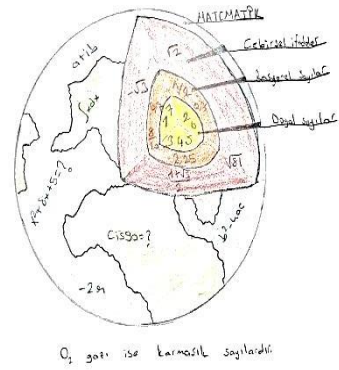 MATEMATİK
Cebirsel ifadeler
Rasyonel sayılar
Doğal sayılar
a+ib
√2
-√3
∫xdx
1 2
3 4 5
-2.25
√81
1+√3
x²+8x+5=?
Cis90=?
b²-4ac
-2π
O₂ gazı ise karmaşık sayılardır.